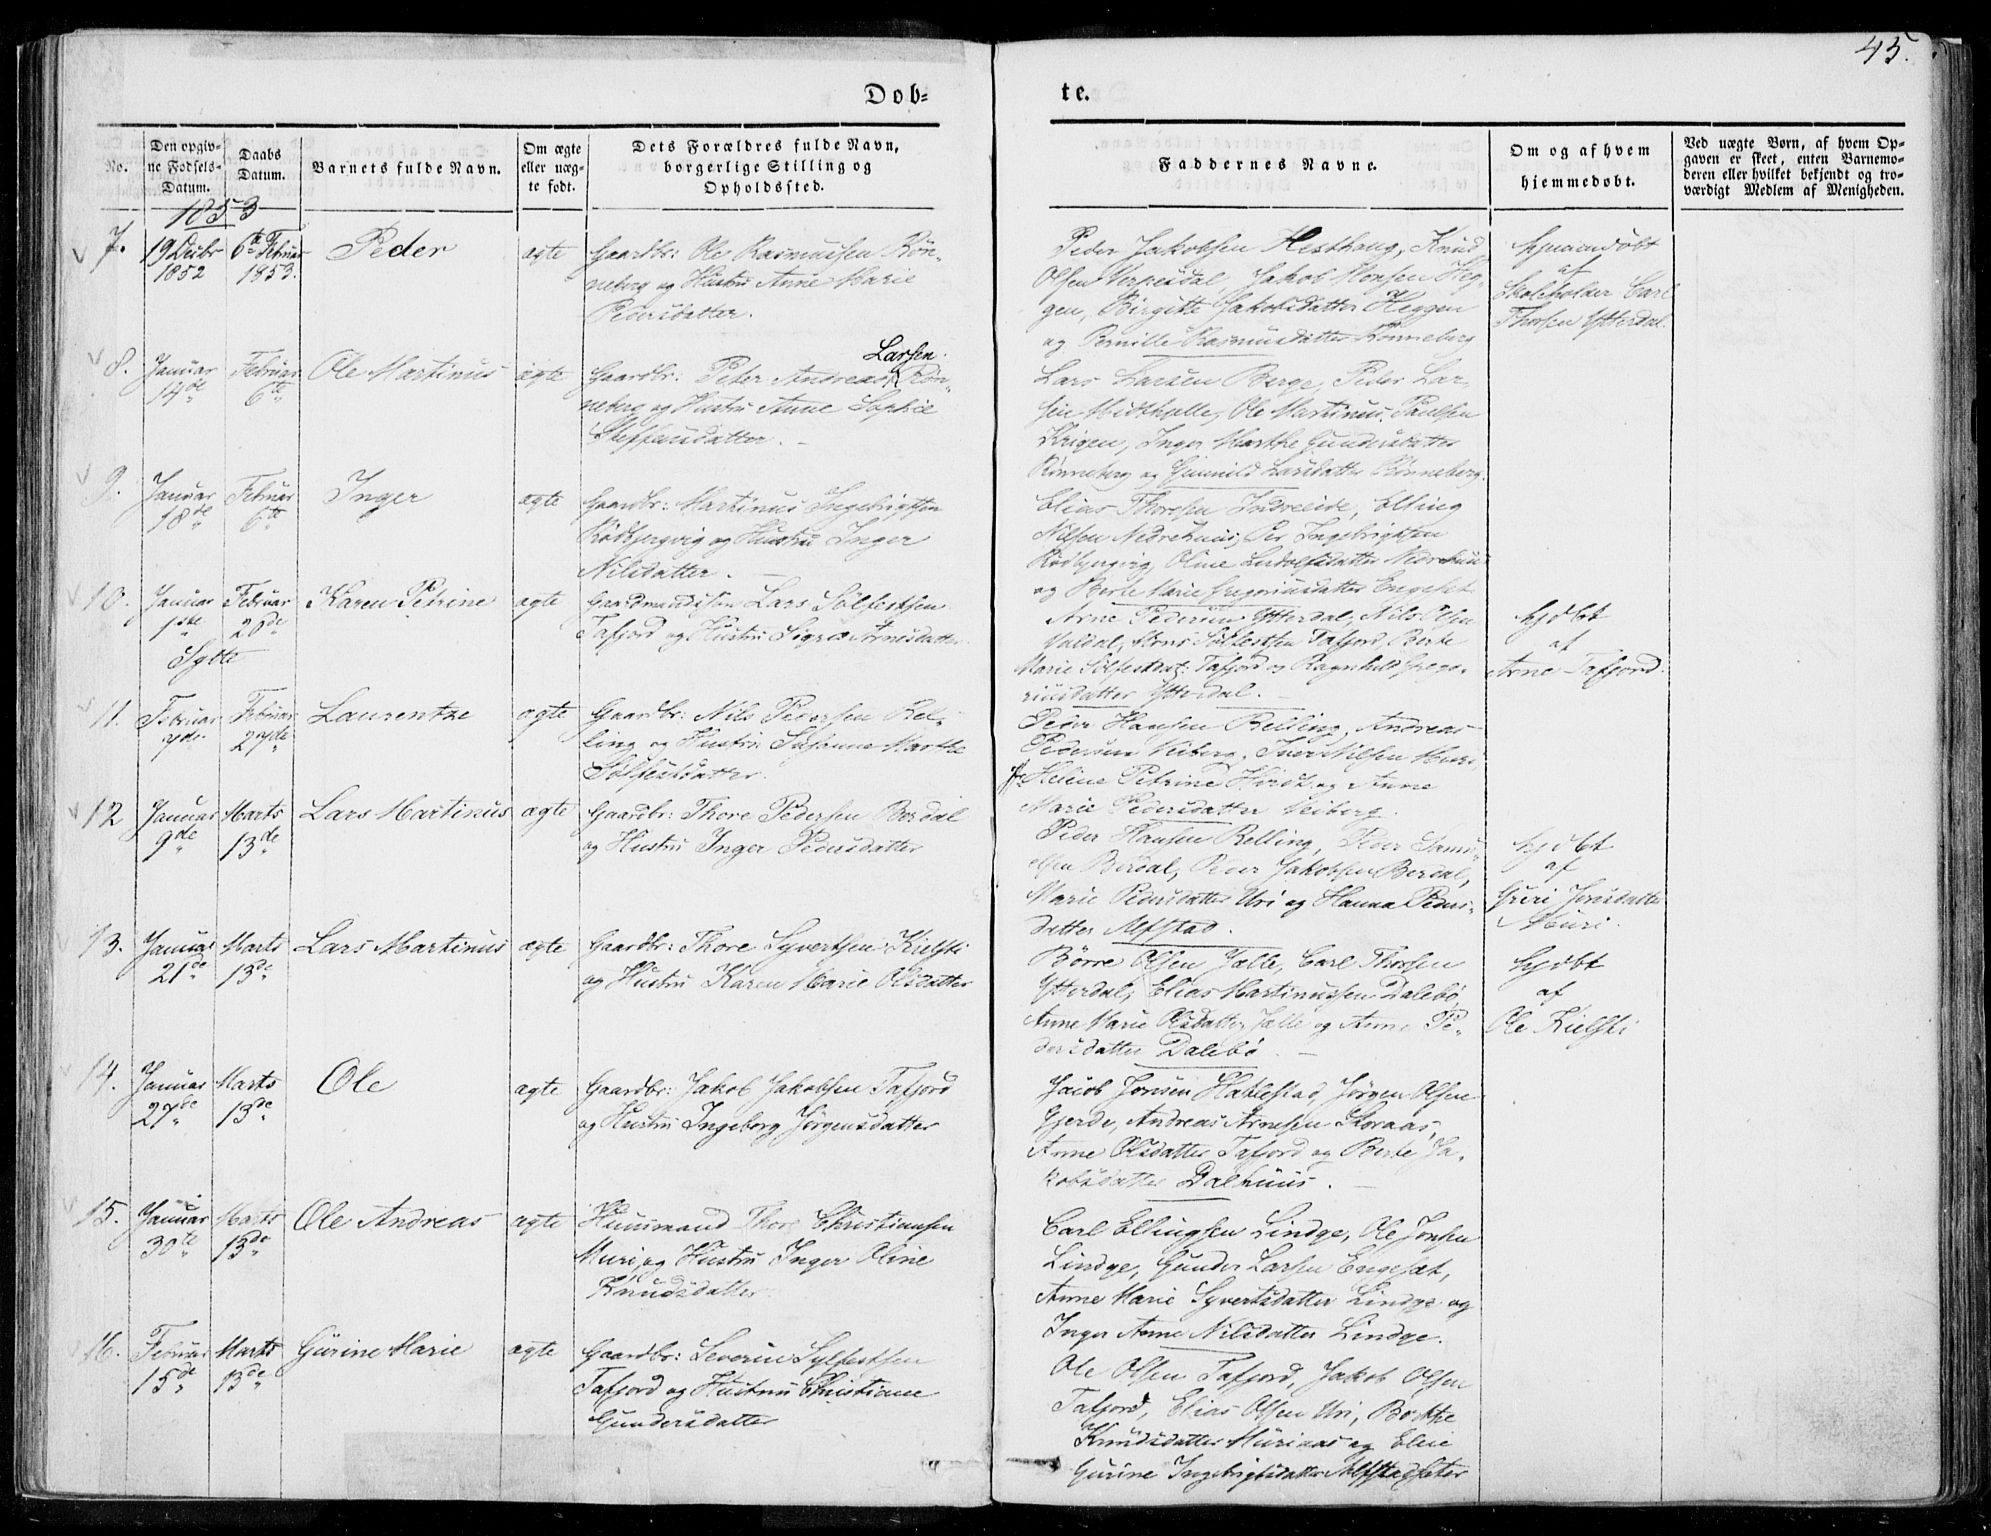 45.
Døb-
te.
No.
Den opgiv-
ne Fødsels-
Datum.
Daabs
Datum.
Barnets fulde Navn.
Om ægte
eller uæg-
te født.
Dets Forældres fulde Navn,
borgerlige Stilling og
Opholdssted.
Faddernes Navne.
Om og af hvem
hjemmedøbt.
Ved uægte Børn, af hvem Op-
gaven er skeet, enten Barnemo-
deren eller hvilket bekjendt og tro-
værdigt Medlem af Menigheden.
1853
7.
19 Decbr
1852
6te Februar
1853.
Peder
ægte
Gaardbr: Ole Rasmussen Røn-
neberg og Hustru Anne Marie
Pedersdatter.
Peder Jakobsen Hesthaug, Knud
Olsen Verpesdal, Jakob Monsen Heg-
gen, Birgitte Jakobsdatter Heggen
og Pernille Rasmusdatter Rønneberg
hjemmedøbt
af
Skoleholder Carl
Thorsen Ytterdal.
8.
Januar
14de
Februar
6te
Ole Martinus
ægte
Larsen
Gaardbr: Peter Andreas Røn-
neberg og Hustru Anne Sophie
Steffensdatter.
Lars Larsen Berge, Peder Lar-
sen Midthjelle, Ole Martinus Paulsen
Krigen, Inger Marthe Gundersdatter
Rønneberg og Gunnild Larsdatter Rønneberg.
9.
Januar
18de
Februar
6te
Inger
ægte
Gaardbr: Martinus Ingebrigtsen
Rødbjergvig og Hustru Inger
Nilsdatter.
Elias Thoresen Indreeide, Elling
Nilsen Nedrehuus, Per Ingebrigtsen
Rødbjergvig, Oline Ludolfsdatter Nedrehuus
og Berte Marie Gregoriusdatter Engeset
10.
Januar
1ste
Sylte
Februar
26de
Karen Petrine
ægte
Gaardmandssøn Lars Sølfestsen
Tafjord og Hustru Signe Arnesdatter.
Arne Pedersen Ytterdal, Nils Olsen
Valdal, Stens Sølfestsen Tafjord, Berte
Marie Sølfestdat: Tafjord og Ragnhild Grego-
riusdatter Ytterdal.
hjdøbt
af
Arne Tafjord.
11.
Februar
7de
Februar
27de
Laurentze
ægte
Gaardbr: Nils Pedersen Rel-
ling og Hustru Susanne Marthe
Sølfestsdatter.
Peder Hansen Relling, Andreas
Pedersen Veiberg, Iver Nilsen Muri,
Helene Petrine Hirdt og Anne
Marie Pedersdatter Veiberg.
12
Januar
9de
Marts
13de
Lars Martinus
ægte
Gaardbr: Thore Pedersen Berdal
og Hustru Inger Pedersdatter
Peder Hansen Relling, Peder Samu-
elsen Berdal, Peder Jakobsen Berdal,
Marie Pedersdatter Uri og Hanna Peders-
datter Alfstad.
hjdøbt
af
Guri Jonsdatter
Muri.
13.
Januar
21de
Marts
13de
Lars Martinus
ægte
Gaardbr: Thore Syvertsen Kielsti
og Hustru Karen Marie Olsdatter
Børre Olsen Jælle, Carl Thorsen
Ytterdal, Elias Martinussen Dalebø,
Anne Marie Olsdatter Jælle og Anne Pe-
dersdatter Dalebø.
hjdøbt
af
Ole Kielsti
14.
Januar
27de
Marts
13de
Ole
ægte
Gaardbr: Jakob Jakobsen Tafjord
og Hustru Ingeborg Jørgensdatter
Jacob Jonsen Hatlestad, Jørgen Olsen
Gjerde, Andreas Arnesen Storaas,
Anne Olsdatter Tafjord og Berte Ja-
kobsdatter Dalhuus.
15.
Januar
30te
Marts
13de
Ole Andreas
ægte
Huusmand Thore Christiansen
Muri og Hustru Inger Oline
Knudsdatter
Carl Ellingsen Lindge, Ole Jonsen
Lindge, Gunder Larsen Engeset,
Anne Marie Syvertsdatter Lindge og
Inger Anne Nilsdatter Lindge.
16.
Februar
15de
Marts
13de
Gurine Marie
ægte
Gaardbr: Severin Sylfestsen
Tafjord og Hustru Christiane
Gundersdatter
Ole Olsen Tafjord, Jakob Olsen
Tafjord, Elias Olsen Uri, Berthe
Knudsdatter Muriaas og Elie
Gurine Ingebrigtsdatter Alfstadsæter